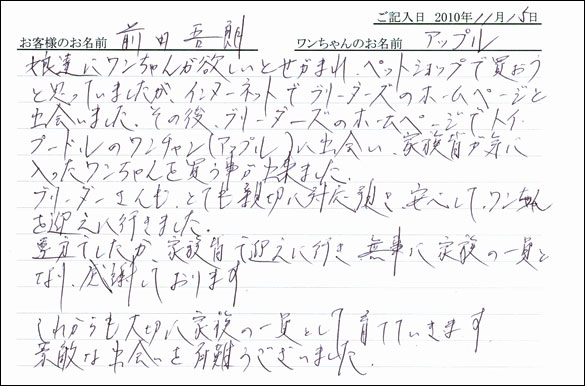 ご記入日 2010年11月15日
お客様のお名前 前田 吾朗 ワンちゃんのお名前 アップル
娘達にワンちゃんが欲しいとせがまれ、ペットショップで買おう
と思っていましたが、インターネットでブリーダーズのホームページと
出会いました。その後、ブリーダーズのホームページでトイ
プードルのワンチャン(アップル)に出会い、家族皆が気に
入ったワンちゃんを買う事が出来ました。
ブリーダーさんも、とても親切に対応頂き、安心して、ワンちゃん
を迎えに行きました。
でしたが 家族皆で迎えに行き 無事に家族の一員と
なり、感謝しております
これからも大切に家族の一員として育てていきます
素敵な出会いを有難うございました。